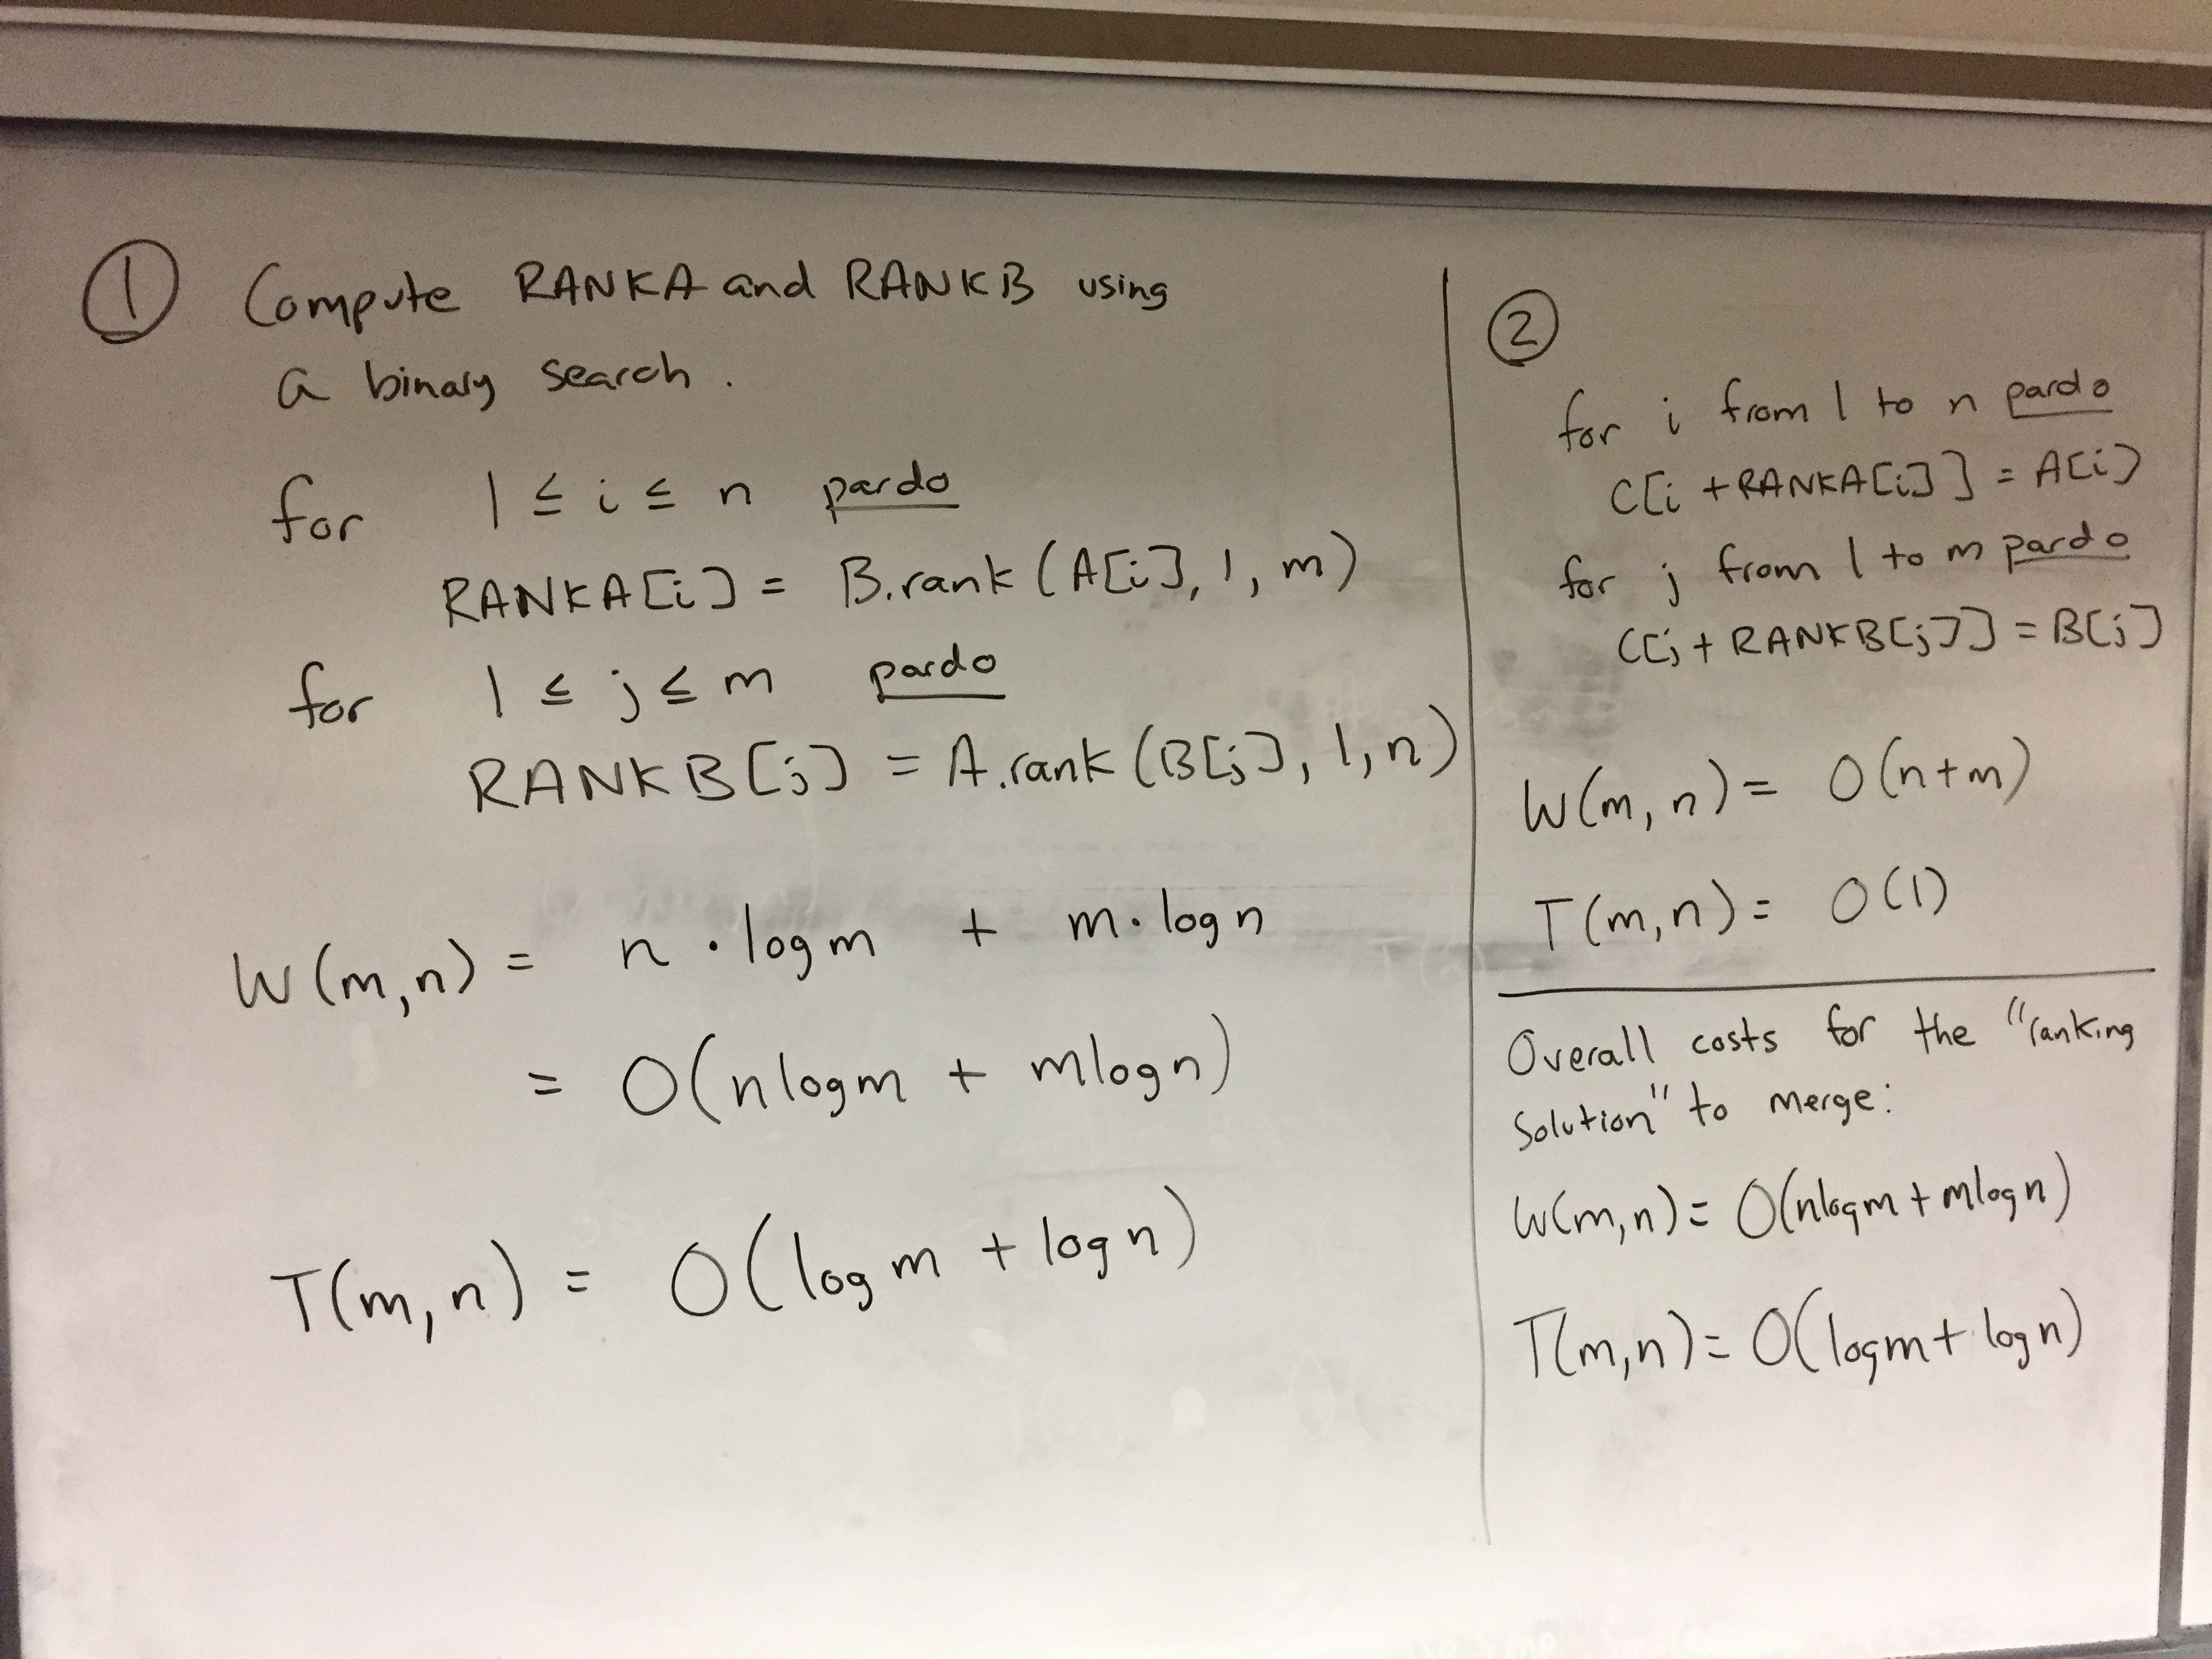 ① Compute RANKA and RANKB using
a binary search.
for 1 ≤ i ≤ n pardo
RANKA[i] = B.rank(A[i], 1, m)
for 1 ≤ j ≤ m pardo
RANKB[j] = A.rank(B[j], 1, n)
W(m,n) = n · log m + m · log n
= O(n log m + m log n)
T(m,n) = O(log m + log n)
②
for i from 1 to n pardo
C[i + RANKA[i]] = A[i]
for j from 1 to m pardo
C[j + RANKB[j]] = B[j]
W(m, n) = O(n+m)
T(m,n) = O(1)
Overall costs for the "ranking
Solution" to merge:
W(m,n) = O(nlogm + mlogn)
T(m,n) = O(logm + logn)